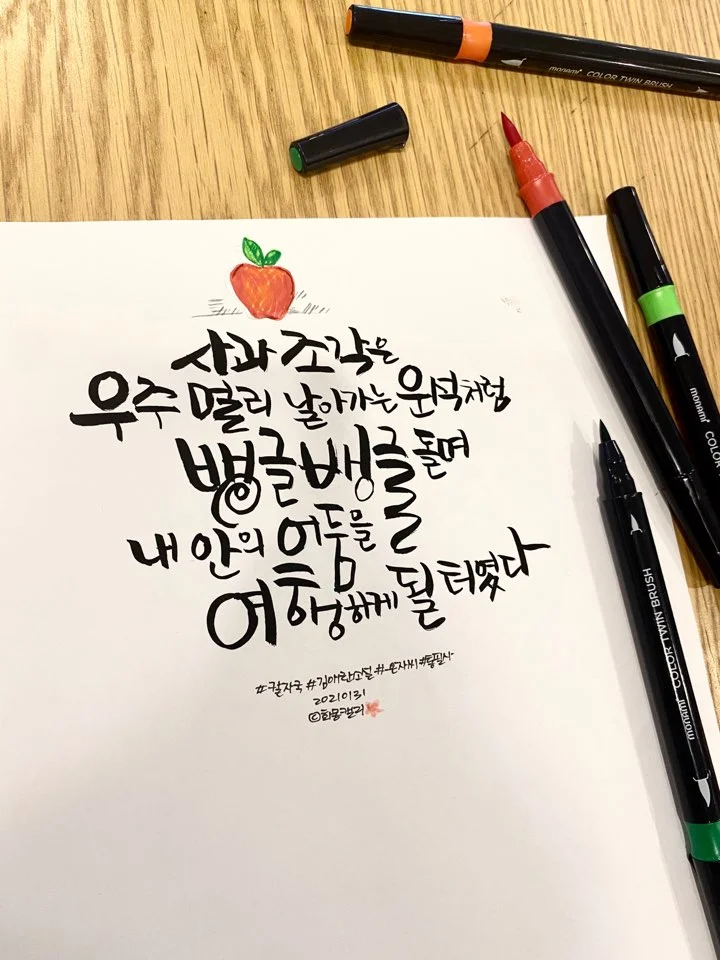 monami COLOR TWIN BRUSH
사과 조각은
우주 멀리 날아가는 운석처럼
뱅글뱅글 돌며
내 안의 어둠을
여행하게 될 터였다
#칼자국 #김애란소설 #손자씨 #통필사
20210131
©희몽캘리
monami COLOR
monami COLOR TWIN BRUSH